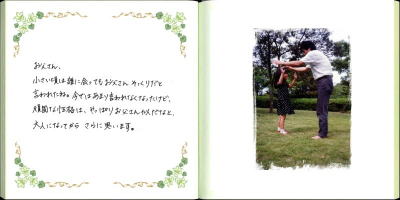 お父さん、
小さい頃は誰に会ってもお父さんそっくりだと
言われたね。今ではあまり言われなくなったけど、
頑固な性格は、やっぱりお父さんゆずりだなと、
大人になってから さらに思います。